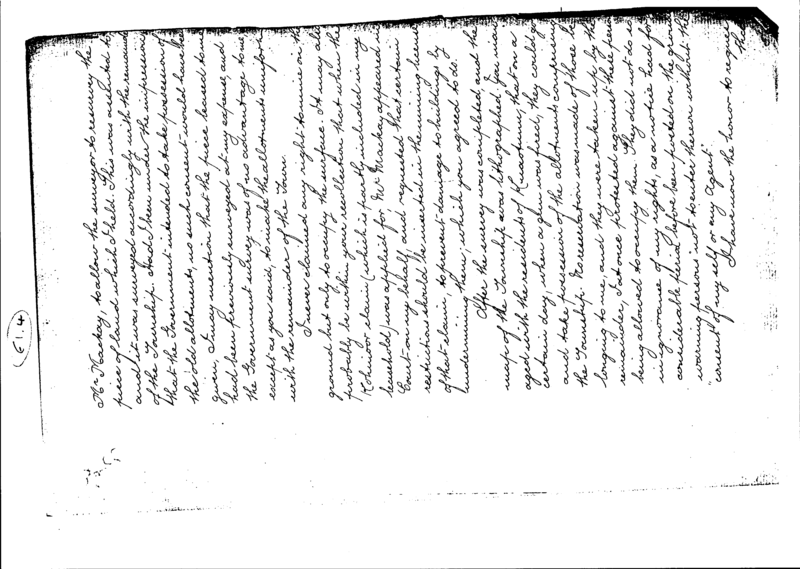 Mr Mackay, to allow the surveyor to resurvey the
piece of land which I held. This was assented to
and it was surveyed accordingly with the remainder
of the Township. Had I been under the impression
that the Government intended to take possession of
the old allotments, no such consent would have been
given. I may mention that the piece leased to me
had been previously surveyed at my expense, and
the Government survey was of no advantage to me
except as you said, to make the allotments conform
with the remainder of the Town.
I never claimed any right to mine on the
ground but only to occupy the surface. It may also
probably be within your recollection that when the
Kohinoor claim (which is partly included in my
leasehold) was applied for Mr Mackay appeared in
Court on my behalf and requested that certain
restrictions should be inserted in the mining lease
of that claim, to prevent damage to buildings by
undermining them, which you agreed to do.
After the survey was completed and the
map of the Township was lithographed you
with the residents of that on a
certain day, when a gun was fired, they could go
and take possession of the allotments comprised in
the Township. No reservation was made of those be-
longing to me, and they were taken up by the
remainder, I at once protested against these persons
being allowed to occupy them. They did not do so
in ignorance of my rights, as a notice had for a
considerable period before been posted on the ground
warning persons not to enter thereon without the
"consent of myself or my agent".
I have now the honor to request
that
61.4